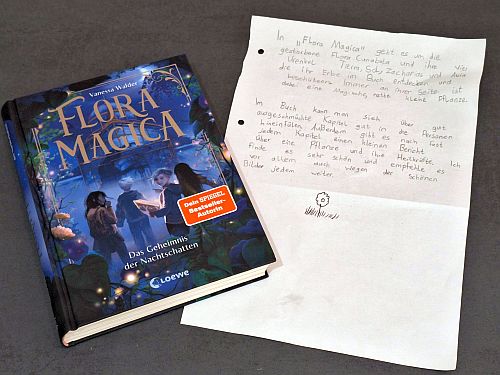 Vanessa Walder
FLORA
MAGICA
Dein SPIEGEL
Bestseller-
Autorin
Das Geheimnis
der Nachtschatten
Loewe
In „Flora Magica" geht es um die
gestorbene Flora Cunabula und ihre vier
Urenkel Tierra, Edy, Zacharias und
die ihr Erbe im Buch entdecken und
beschützen. Immer an ihrer Seite ist
dabei eine magische, rote kleine Pflanze.
Im Buch kann man sich über
ausgeschmückte Kapitel gut in die Personen
hineinfülen. Außerdem gibt es nach fast
jedem Kapitel einen kleinen Bericht
über eine Pflanze und ihre Heilkräfte. Ich
finde es sehr schön und empfehle es
vor allem auch wegen der schönen
Bilder jedem weiter.